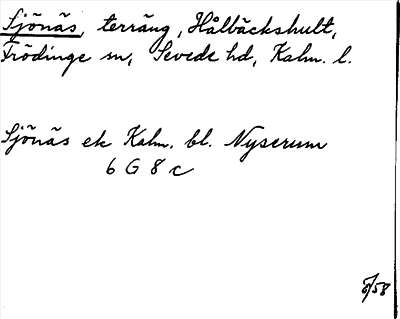 Sjönäs, terräng, Hålbäckshult,
Frödinge sn, Sevede hd, Kalm. l.
Sjönäs ek Kalm. bl. Nyserum
6 G 8 c
5/58